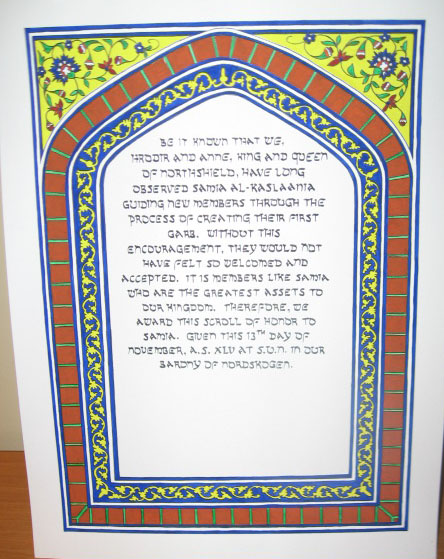 BE IT KNOWN THAT WE,
HRODIR AND ANNE, KING AND QUEEN
OF NORTHSHIELD, HAVE LONG
OBSERVED SAMIA AL-KASLAANIA
GUIDING NEW MEMBERS THROUGH THE
PROCESS OF CREATING THEIR FIRST
GARB. WITHOUT THIS
ENCOURAGEMENT, THEY WOULD NOT
HAVE FELT SO WELCOMED AND
ACCEPTED. IT IS MEMBERS LIKE SAMIA
WHO ARE THE GREATEST ASSETS TO
OUR KINGDOM. THEREFORE, WE
AWARD THIS SCROLL OF HONOR TO
SAMIA. GIVEN THIS 13TH DAY OF
NOVEMBER, A.S. XLV AT S.U.N. IN OUR
BARONY OF NORDSKOGEN.